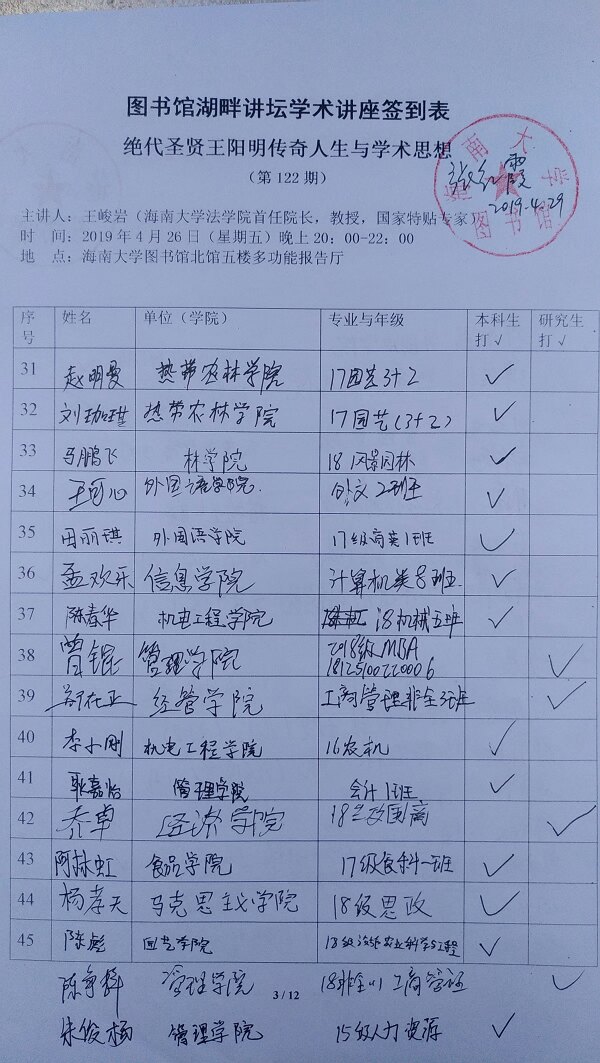 图书馆湖畔讲坛学术讲座签到表
绝代圣贤王阳明传奇人生与学术思想
（第 122 期）
海南大学
图书馆
2019.4.29
主讲人：王峻岩（海南大学法学院首任院长，教授，国家特贴专家）
时 间：2019 年 4 月 26 日（星期五）晚上 20：00-22：00
地 点：海南大学图书馆北馆五楼多功能报告厅
序号 姓名 单位（学院） 专业与年级 本科生打√ 研究生打√
31 赵明曼 热带农林学院 17园艺3+2 ✓
32 刘珈琪 热带农林学院 17园艺(3+2) ✓
33 马鹏飞 林学院 18风景园林 ✓
34 王可心 外国语学院. 外文2班 ✓
35 田丽琪 外国语学院 17级高英1班 ✓
36 孟欢乐 信息学院 计算机类8班. ✓
37 陈春华 机电工程学院 18机械五班 ✓
38 曾锟 管理学院 2018级MBA ✓
39 经管学院 工商管理非全3班 ✓
40 李小刚 机电工程学院 16农机 ✓
41 耿嘉怡 管理学院 会计1班 ✓
42 乔卓 经济学院 ✓
43 阿妹虹 食品学院 17级食科一班 ✓
44 杨孝天 马克思主义学院 18级思政 ✓
45 陈彪 园艺学院 ✓
管理学院 ✓
3 / 12
朱俊杨 管理学院 15级人力资源 ✓